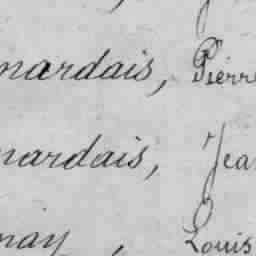 nardais, Pierre
nardais, Jea
nay, Louis